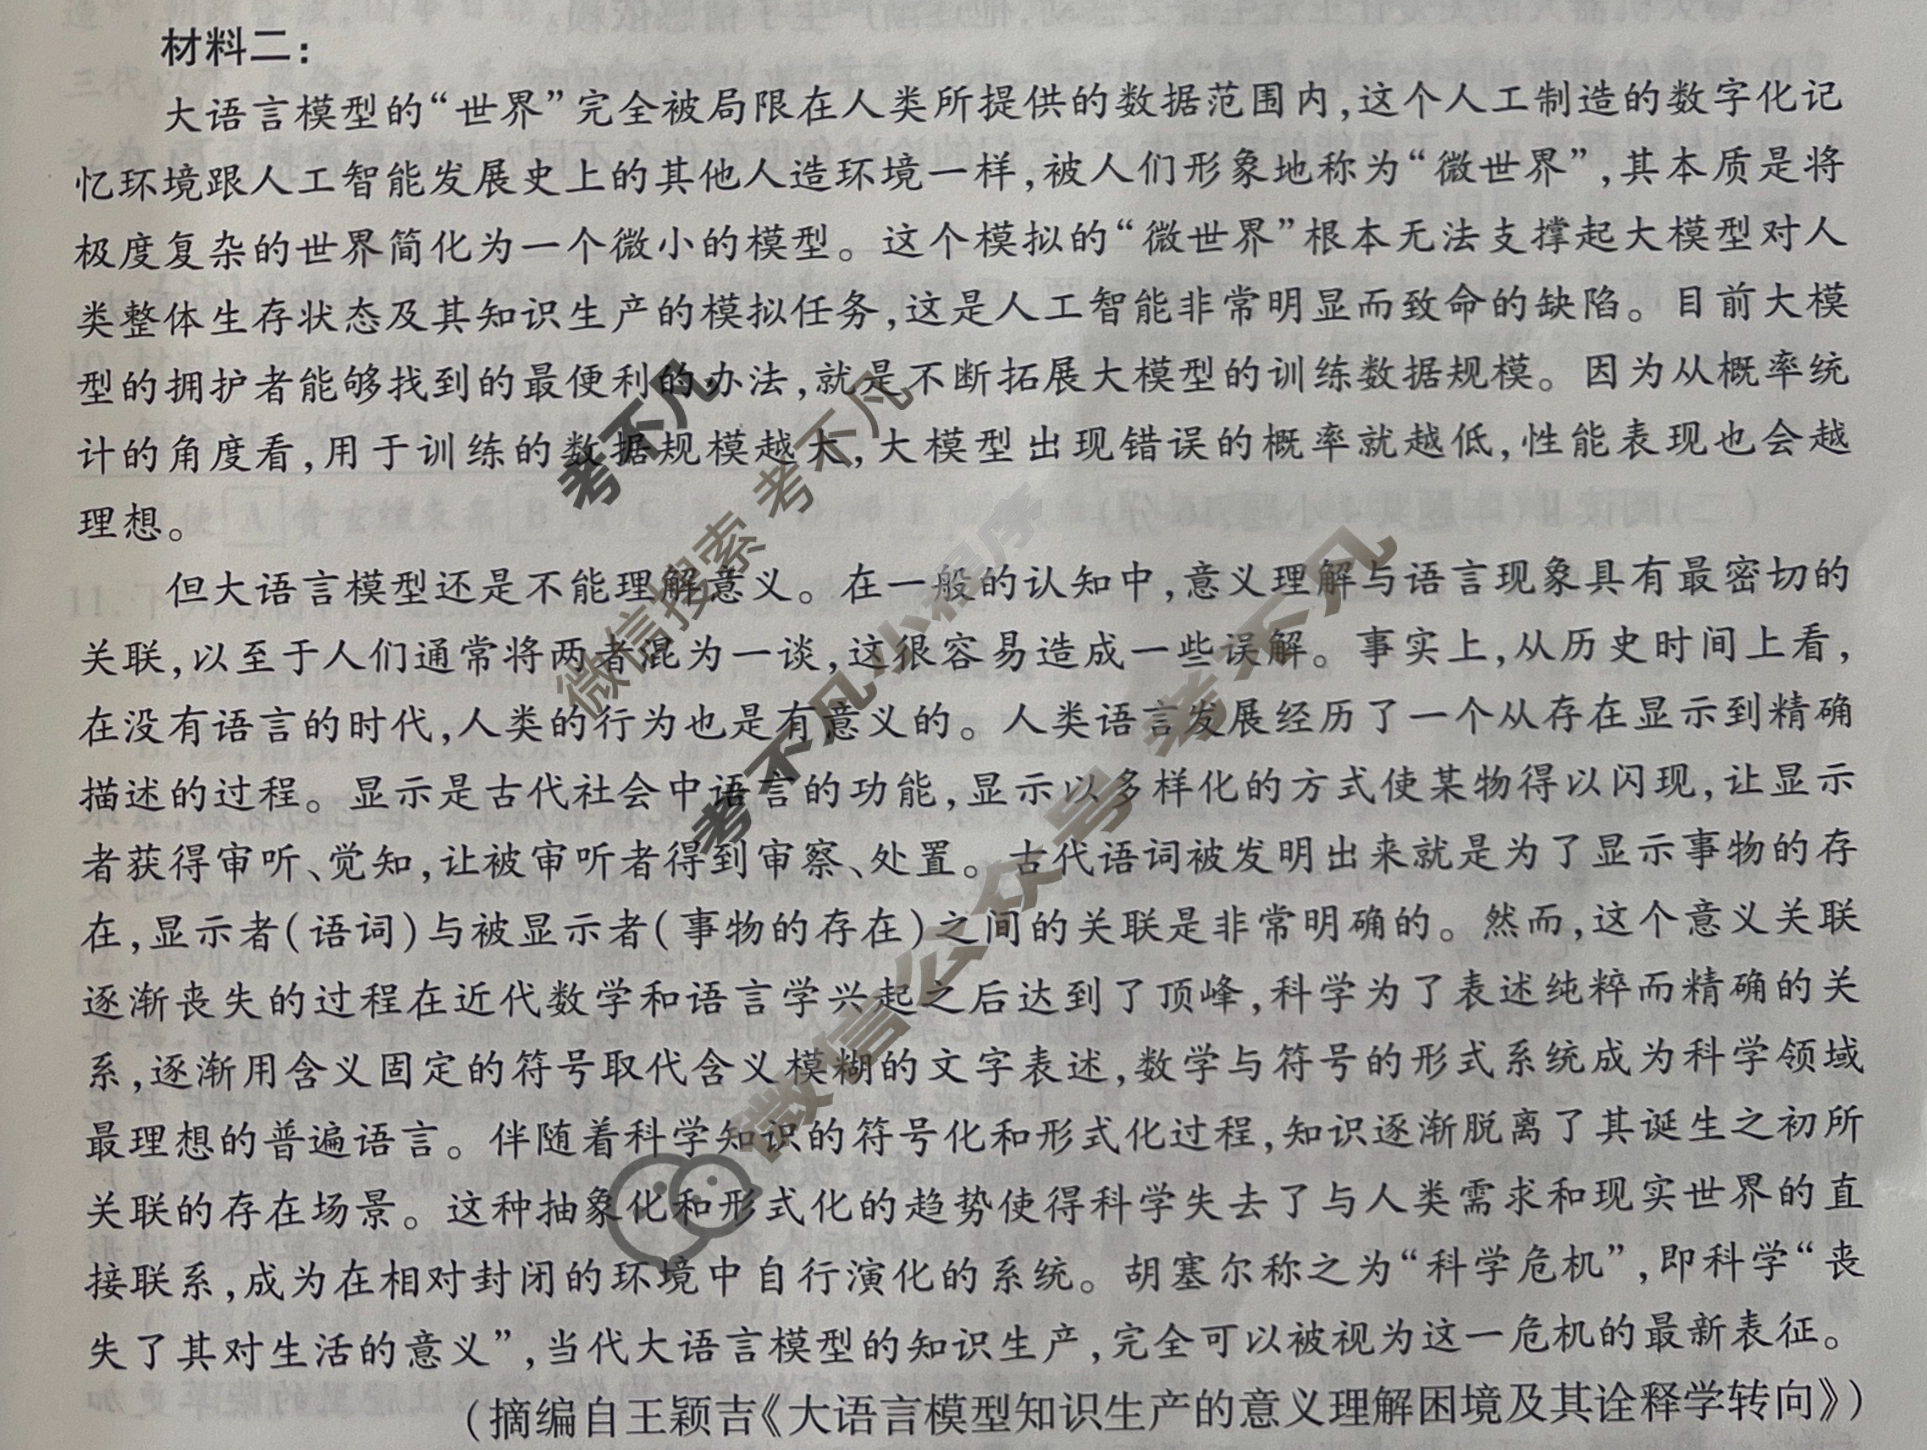 材料二：
大语言模型的“世界”完全被局限在人类所提供的数据范围内，这个人工制造的数字化记
忆环境跟人工智能发展史上的其他人造环境一样，被人们形象地称为“微世界”，其本质是将
极度复杂的世界简化为一个微小的模型。这个模拟的“微世界”根本无法支撑起大模型对人
类整体生存状态及其知识生产的模拟任务，这是人工智能非常明显而致命的缺陷。目前大模
型的拥护者能够找到的最便利的办法，就是不断拓展大模型的训练数据规模。因为从概率统
计的角度看，用于训练的数据规模越大，大模型出现错误的概率就越低，性能表现也会越
理想。
但大语言模型还是不能理解意义。在一般的认知中，意义理解与语言现象具有最密切的
关联，以至于人们通常将两者混为一谈，这很容易造成一些误解。事实上，从历史时间上看，
在没有语言的时代，人类的行为也是有意义的。人类语言发展经历了一个从存在显示到精确
描述的过程。显示是古代社会中语言的功能，显示以多样化的方式使某物得以闪现，让显示
者获得审听、觉知，让被审听者得到审察、处置。古代语词被发明出来就是为了显示事物的存
在，显示者（语词）与被显示者（事物的存在）之间的关联是非常明确的。然而，这个意义关联
逐渐丧失的过程在近代数学和语言学兴起之后达到了顶峰，科学为了表述纯粹而精确的关
系，逐渐用含义固定的符号取代含义模糊的文字表述，数学与符号的形式系统成为科学领域
最理想的普遍语言。伴随着科学知识的符号化和形式化过程，知识逐渐脱离了其诞生之初所
关联的存在场景。这种抽象化和形式化的趋势使得科学失去了与人类需求和现实世界的直
接联系，成为在相对封闭的环境中自行演化的系统。胡塞尔称之为“科学危机”，即科学“丧
失了其对生活的意义”，当代大语言模型的知识生产，完全可以被视为这一危机的最新表征。
（摘编自王颖吉《大语言模型知识生产的意义理解困境及其诠释学转向》）
考不凡
考不凡
微信搜索
考不凡小程序
微信公众号 考不凡